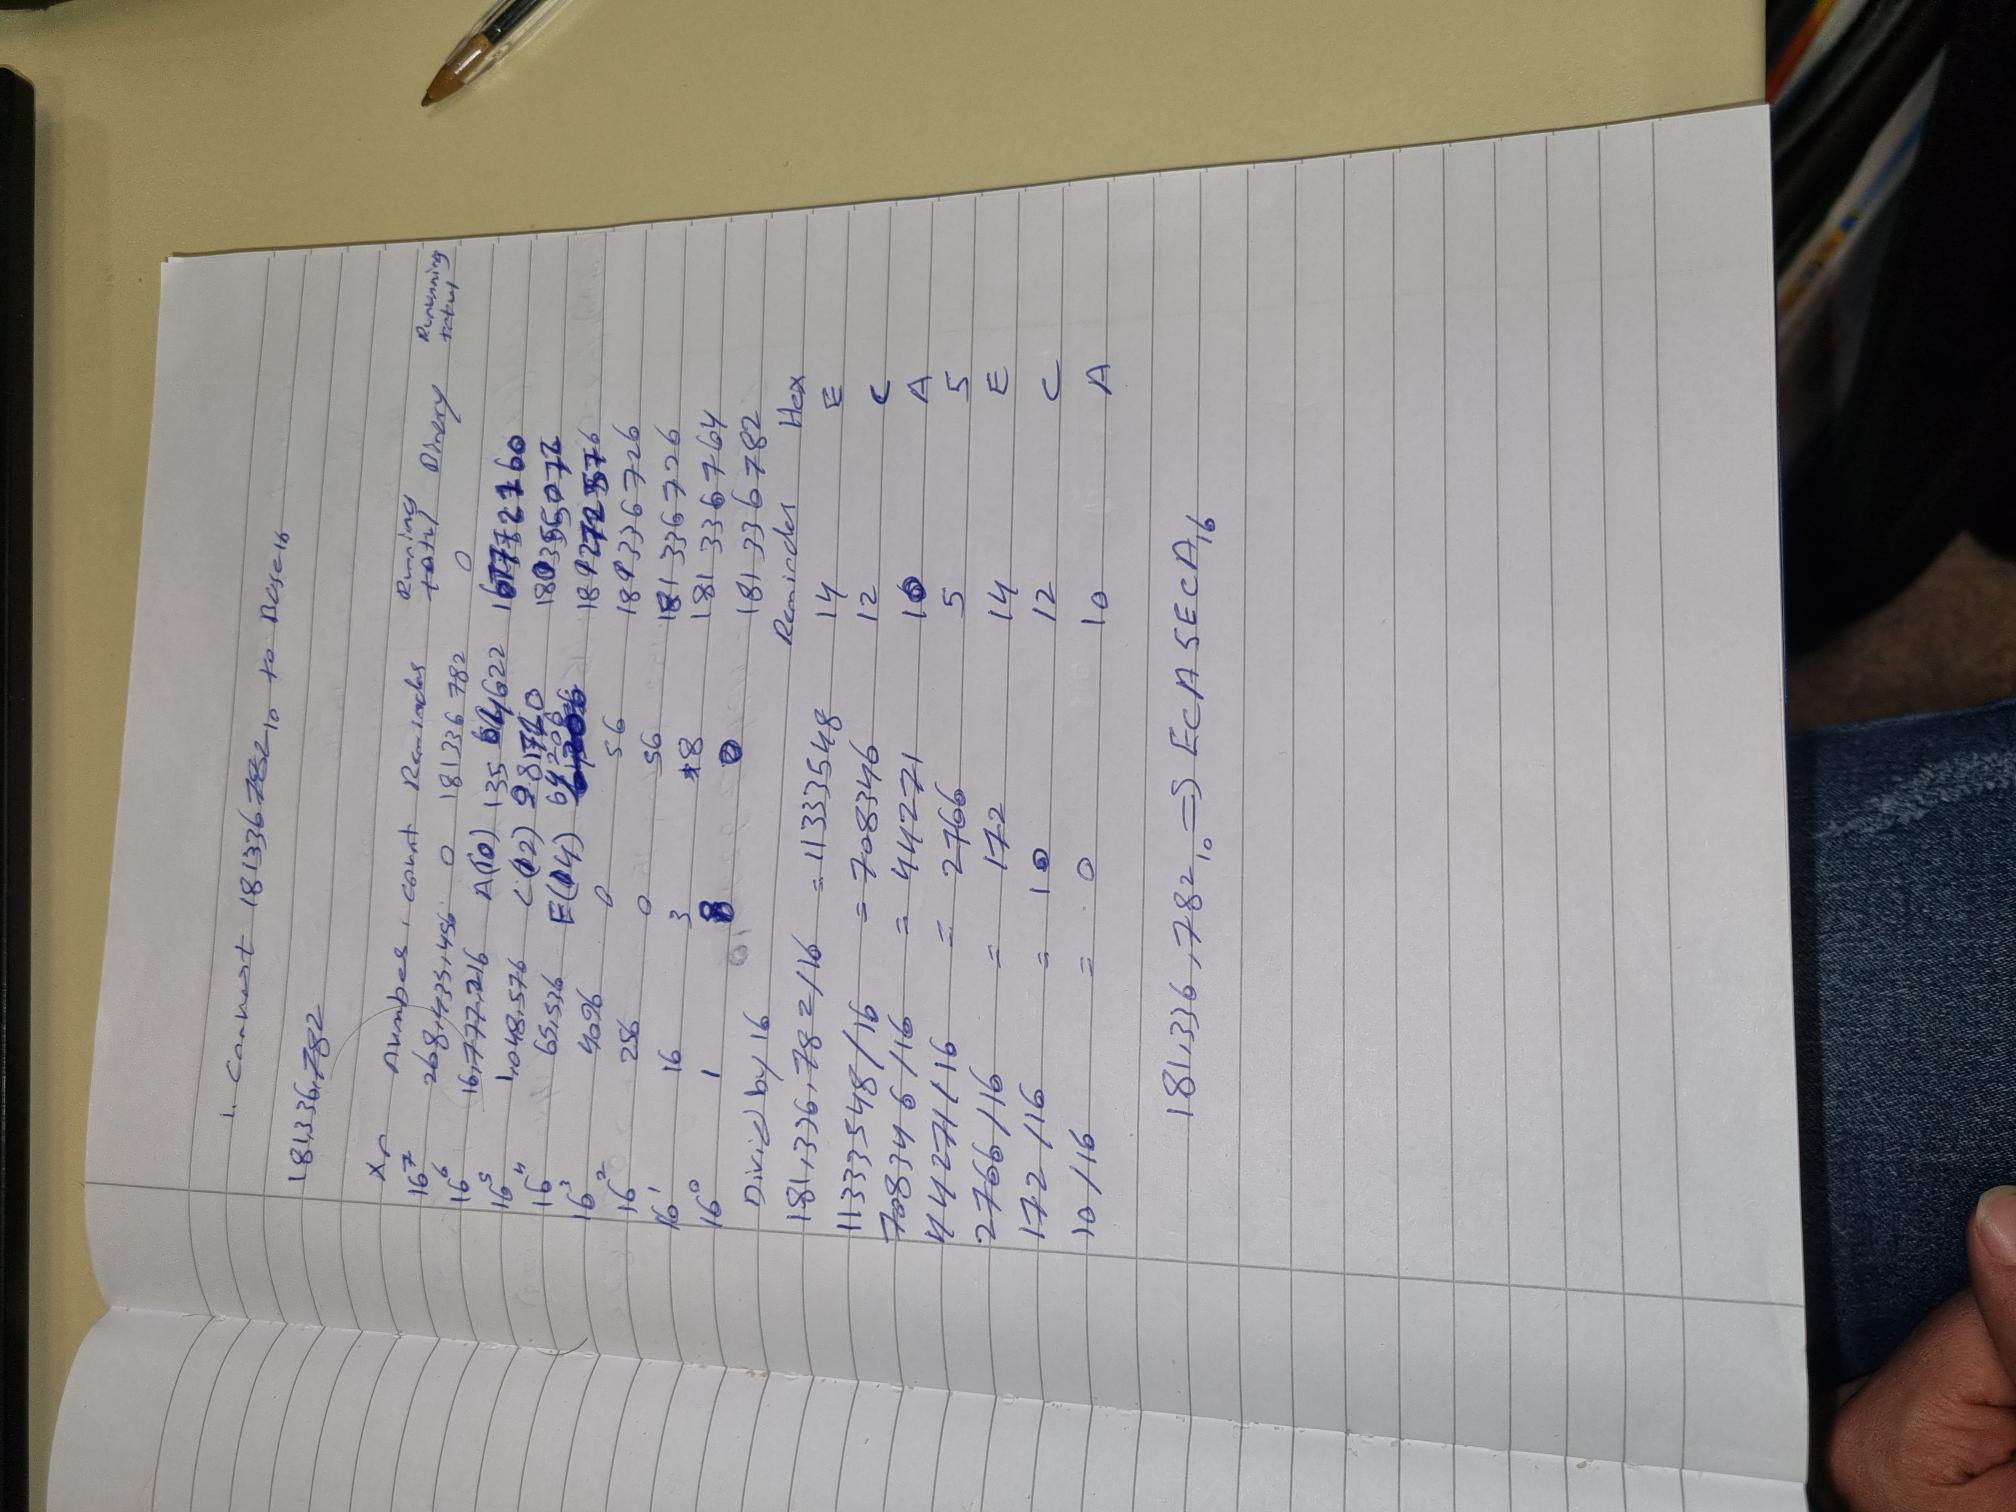 1. Convert 181336782₁₀ to Base16
181,336,782
Xn Number count Reminder Running total Binery Runnning total
16⁷ 268,435,456 0 181336782 0
16⁶ 16,777,216 A(10) 13564622 167772160
16⁵ 1,048,576 C(12) 981720 180355072
16⁴ 65,536 E(14) 64206 181272576
16³ 4096 0 56 181336726
16² 256 0 56 181336726
16¹ 16 3 8 181336764
16⁰ 1 8 0 181336782
Divid by 16 Reminder Hex
181,336,782/16 = 11333548 14 E
11333548/16 = 708346 12 C
708346/16 = 44271 10 A
44271/16 = 2766 5 5
2766/16 = 172 14 E
172/16 = 10 12 C
10/16 = 0 10 A
181,336,782₁₀ => ECA5ECA₁₆